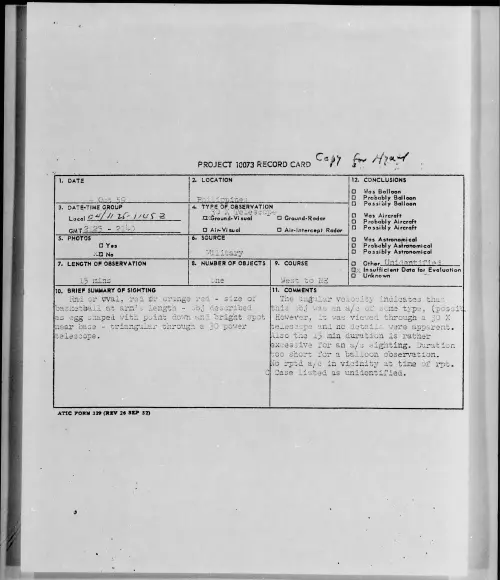 Copy for Hynek
PROJECT 10073 RECORD CARD
1. DATE
Oct 59
2. LOCATION
Philippines
12. CONCLUSIONS
□ Was Balloon
□ Probably Balloon
□ Possibly Balloon
□ Was Aircraft
□ Probably Aircraft
□ Possibly Aircraft
□ Was Astronomical
□ Probably Astronomical
□ Possibly Astronomical
□ Other Unidentified
□ Insufficient Data for Evaluation
□ Unknown
3. DATE-TIME GROUP
Local
GMT
4. TYPE OF OBSERVATION
30 X Telescope
□ Ground-Visual □ Ground-Radar
□ Air-Visual □ Air-Intercept Radar
5. PHOTOS
□ Yes
□ No
6. SOURCE
Military
7. LENGTH OF OBSERVATION
15 mins
8. NUMBER OF OBJECTS
one
9. COURSE
West to NE
10. BRIEF SUMMARY OF SIGHTING
Rnd or oval, red or orange red - size of
basketball at arm's length - obj described
as egg shaped with point down and bright spot
near base - triangular through a 30 power
telescope.
11. COMMENTS
The angular velocity indicates that
this obj was an a/c of some type, (possib
However, it was viewed through a 30 X
telescope and no details were apparent.
Also the 15 min duration is rather
excessive for an a/c sighting. Duration
too short for a balloon observation.
No rptd a/c in vicinity at time of rpt.
Case listed as unidentified.
ATIC FORM 329 (REV 26 SEP 52)